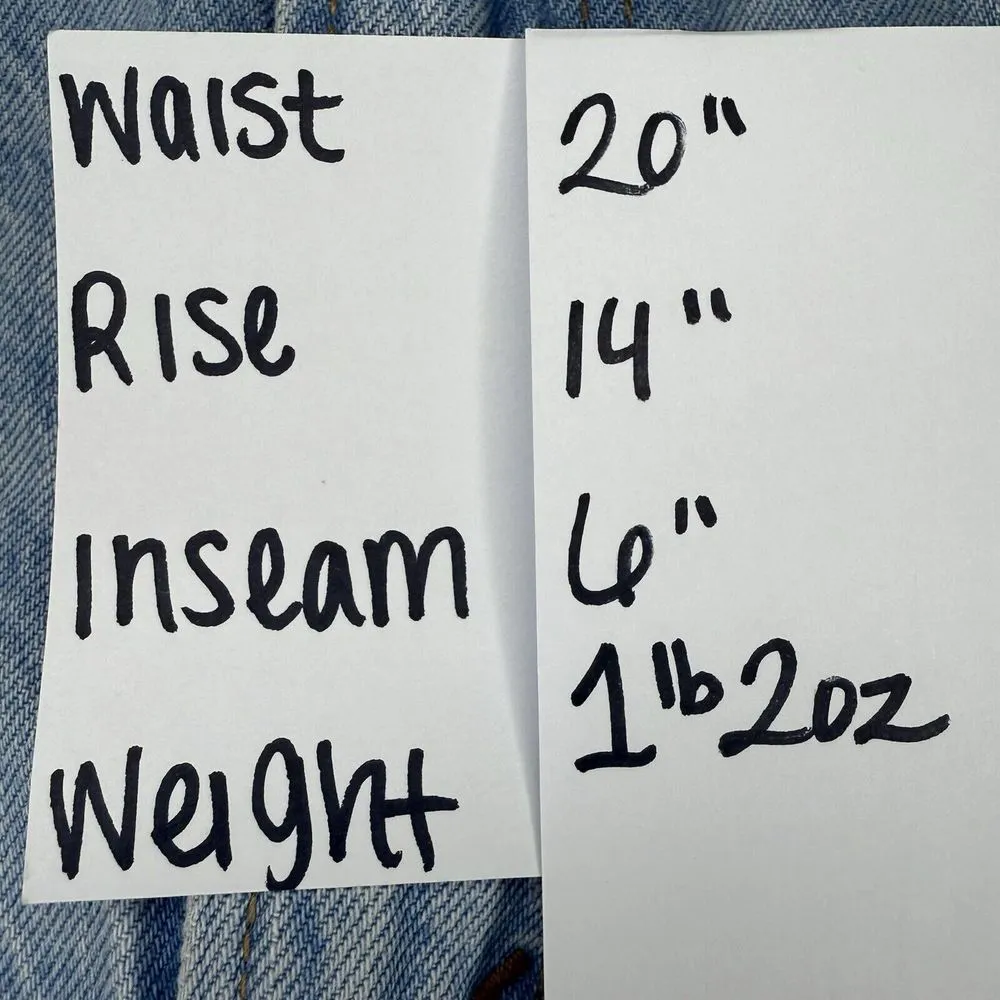 Waist 20"
Rise 14"
Inseam 6"
Weight 1 lb 2oz